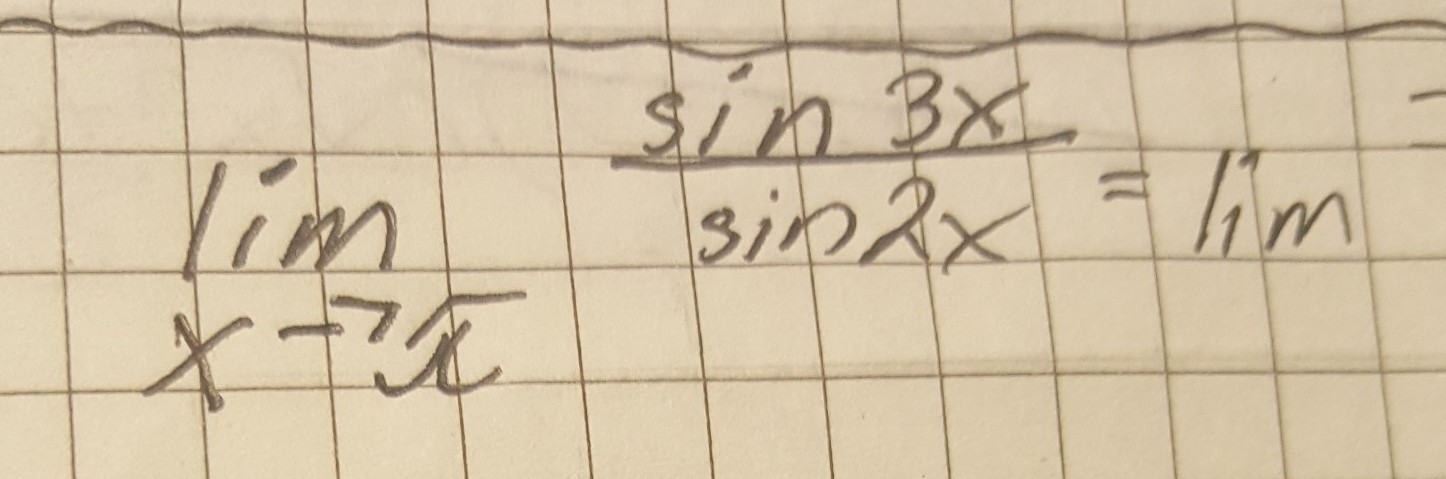 lim x→π sin 3x / sin 2x = lim